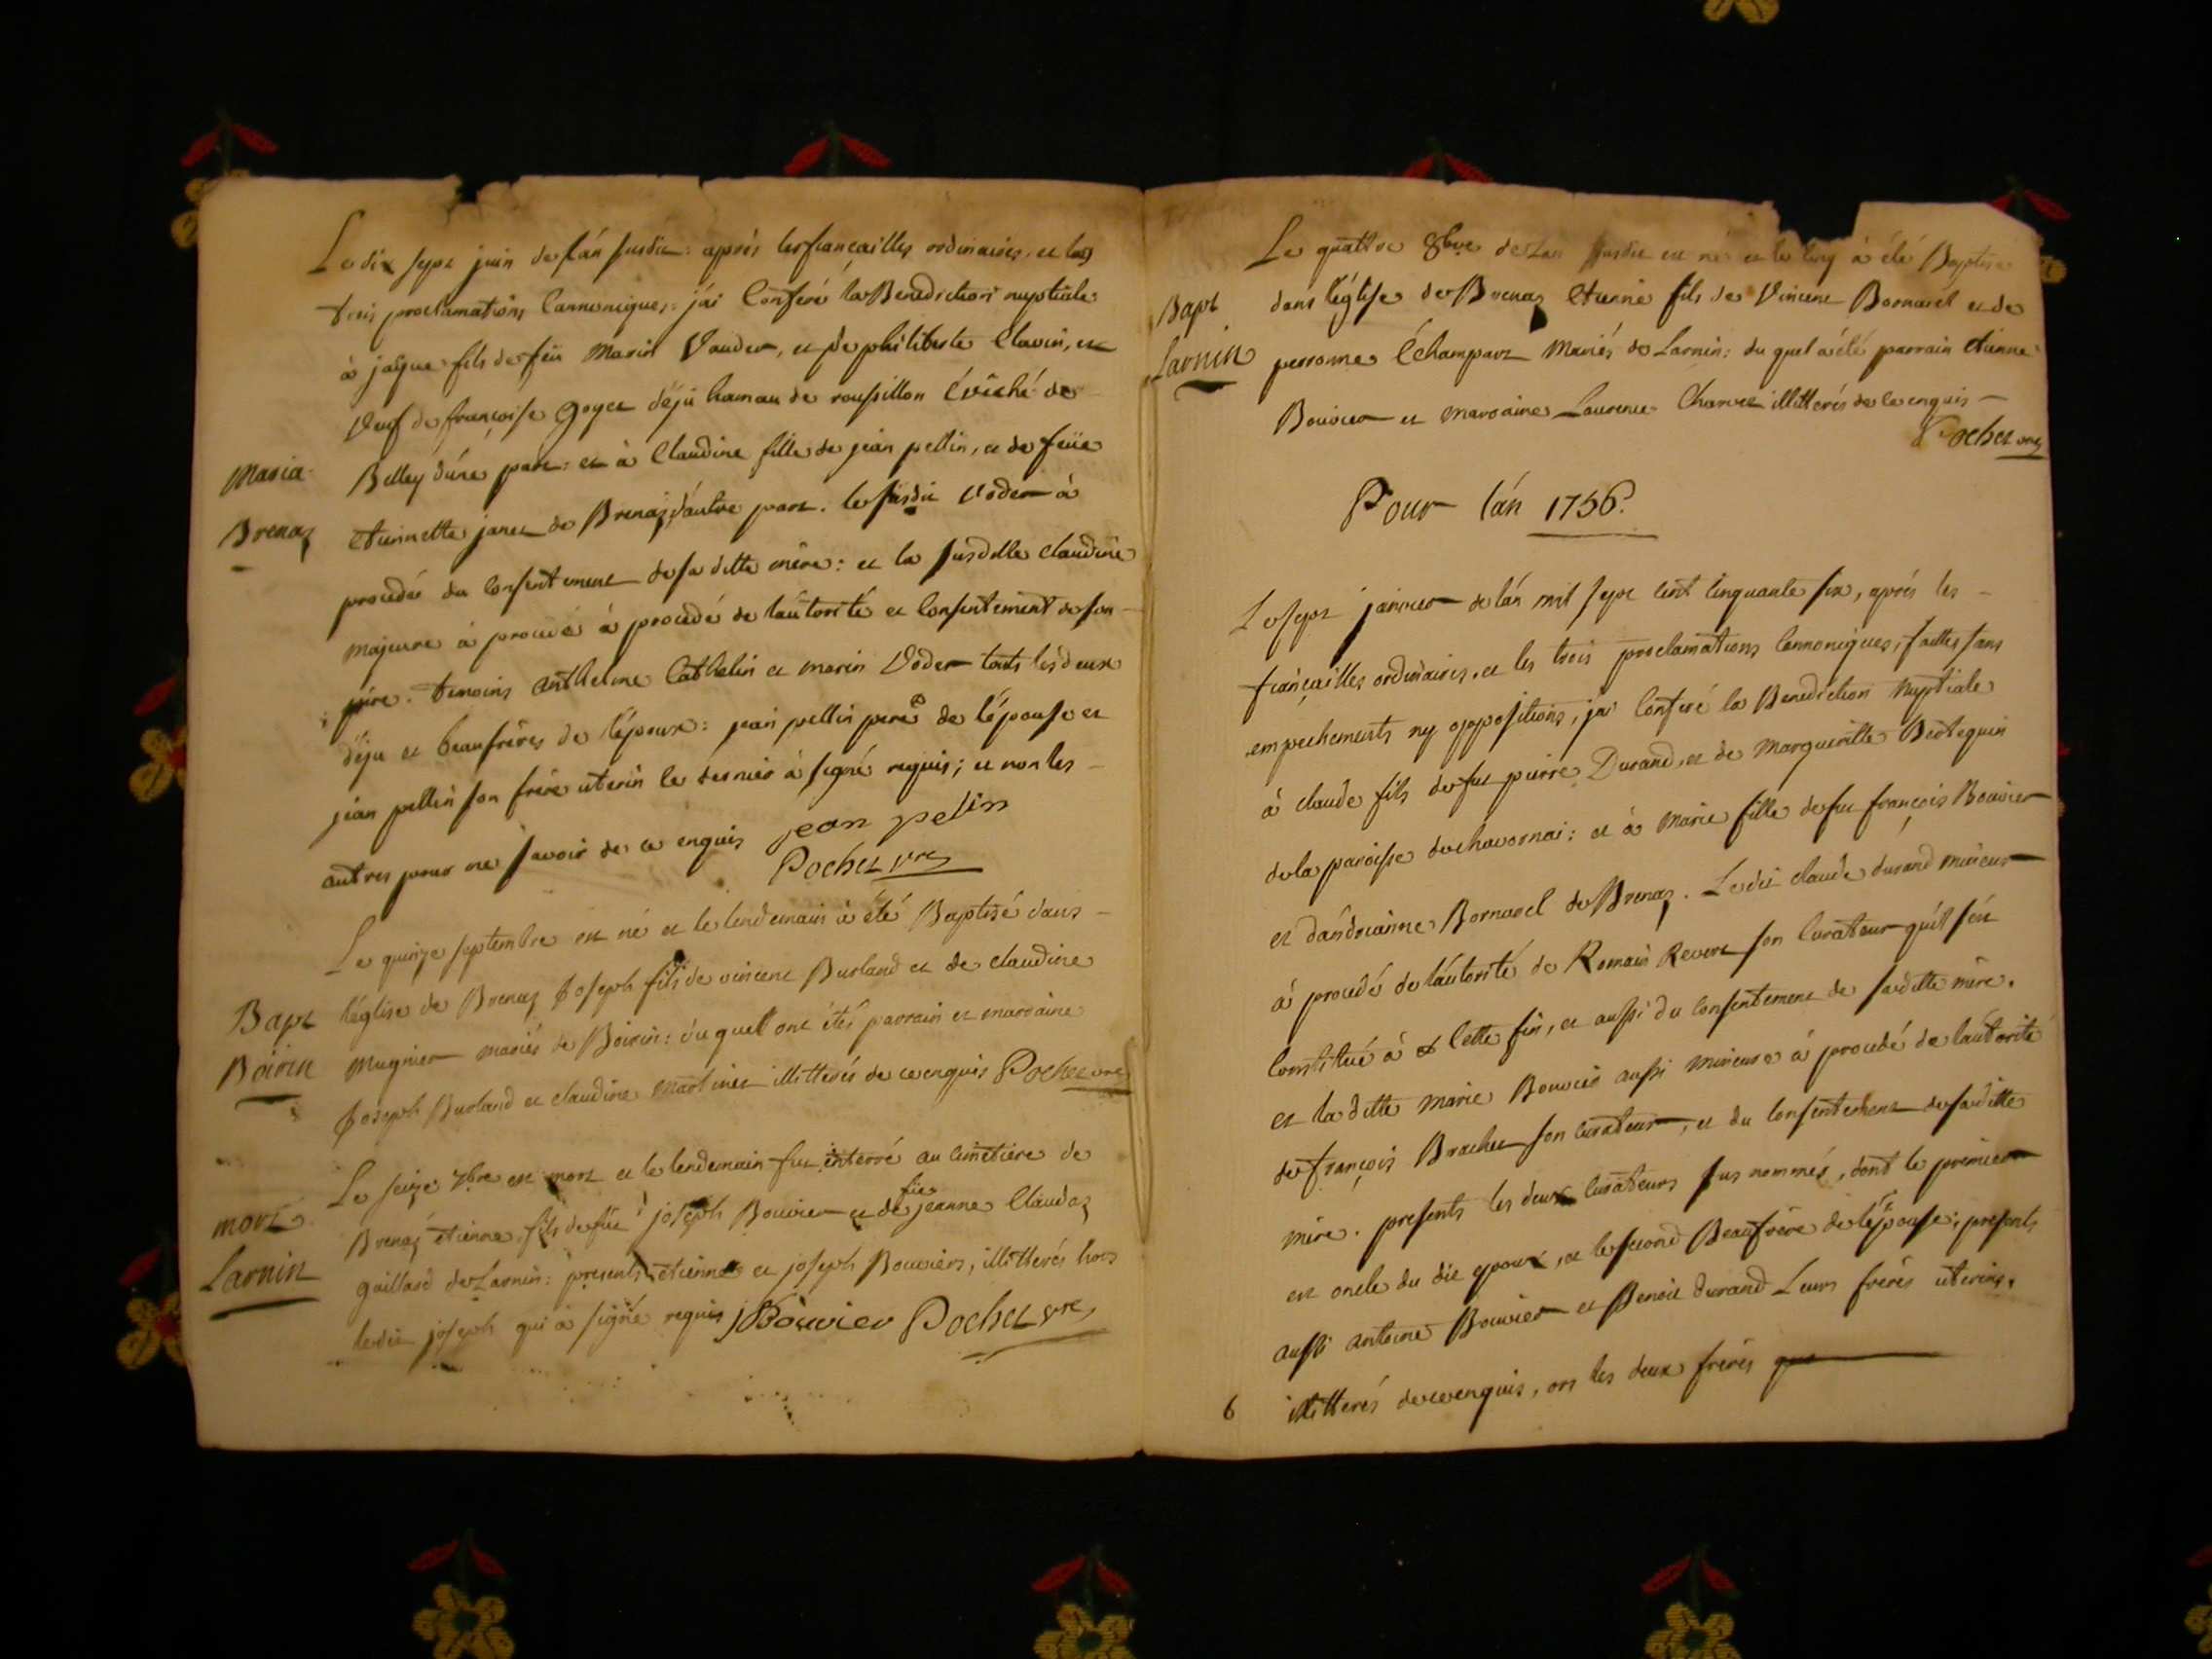 Le dix sept juin de l'án susdit: aprés les fiançailles ordinaires, et les
trois proclamations Cannoniques: j'ái Conferé la Benediction nuptiale
à jaque fils de feu Marin Vauder, et de philiberte Clavin, et
Veuf de françoise Goyet déju hamau de roussillon Évéché de
Belley d'úne part: et à Claudine fille de jean pellin, et de feüe
Maria
Brenaz
etiennette janet de Brenaz d'áutre part. le susdit Voder à
procedés du Consentement de sa ditte mére: et la susditte claudine
majeure à procedé à procedé de láutorité et Consentement de son
pére. temoins anthelme Cathelin et marin Voder touts les deux
déju et beaufréres de l'époux: jean pellin pere de l'épouse et
jean pellin son frére uterin le dernier à signé requis; et non les
autres pour ne savoir de ce enquis jean pelin
Pochet vre
Le quinze septembre est né et le lendemain à été Baptisé dans
Bapt
Boirin
l'église de Brenaz Joseph fils de vincent Burland et de claudine
Mugnier mariés de Boirin: du quel ont étés parrain et marraine
Joseph Burland et claudine Martinet illitterés de ce enquis Pochet vre
Le seize 7bre est mort et le lendemain fut enterré au cimetiére de
mort
Larnin
Brenaz etienne fils de feu joseph Bouvier et de füe jeanne Claudaz
gaillard de Larnin: presents etienne et joseph Bouviers, illitterés hors
ledit joseph qui à signé requis JBouvier Pochet vre
Le quattre 8bre de Lan susdit est né et le cinq à été Baptisé
Bapt
Larnin
dans l'église de Brenaz Etienne fils de Vincent Bornarel et de
perronne Échampart Mariés de Larnin: du quel a été parrain etienne
Bouvier et marraine Laurence Charvet illitterés de ce enquis
Pochet vre
Pour lán 1756.
Le sept janvier de lán mil sept cent cinquante six, aprés les
fiançailles ordinaires, et les trois proclamations Cannoniques, faittes sans
empechements ny oppositions, j'ai Conferé la Benediction Nuptiale
à claude fils de fut pierre Durand, et de Margueritte Berthequin
de la paroisse de chavornai: et à Marie fille de fut françois Bouvier
et d'ándrianne Bornarel de Brenaz. Le dit claude durand mineur
à procedé de láutorité de Romain Revert son Curateur qu'il s'est
Constitué à Cette fin, et aussi du consentement de sa ditte mére.
et la ditte marie Bouvier aussi mineure à procedé de láutorité
de françois Brachet son curateur, et du Consentement de sa ditte
mére. presents les deux curateurs sus nommés, dont le premier
est oncle du dit epoux, et le second Beaufrére de l'épouse; presents
aussi antoine Bouvier et Benoit durand Leurs fréres uterins.
illitterés de ce enquis, ors les deux fréres que
6